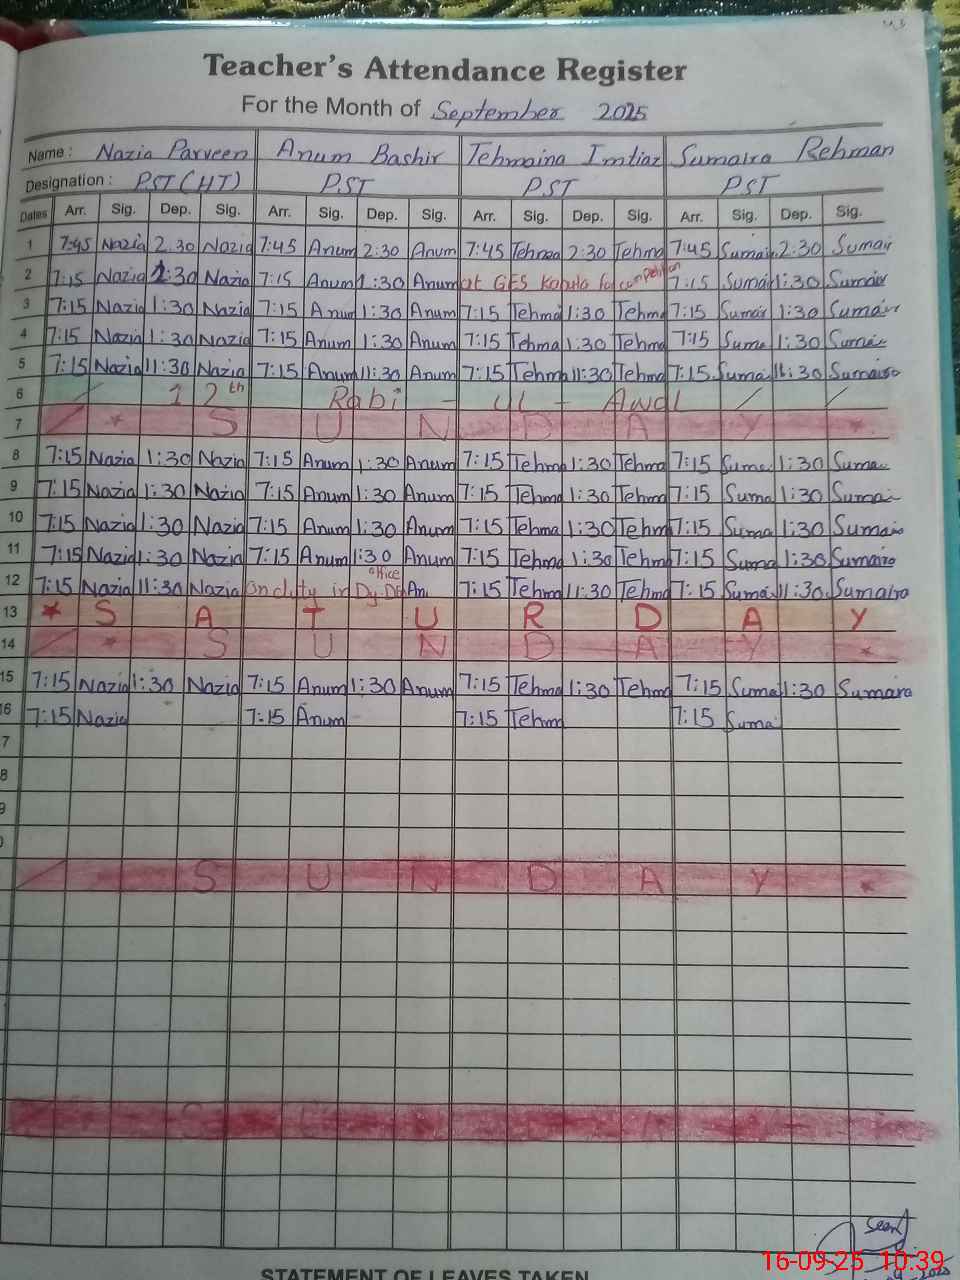 Teacher's Attendance Register
For the Month of September 2025
Name : Nazia Parveen Anum Bashir Tehmaina Imtiaz Sumaira Rehman
Designation : PST (HT) PST PST PST
Dates Arr. Sig. Dep. Sig. Arr. Sig. Dep. Sig. Arr. Sig. Dep. Sig. Arr. Sig. Dep. Sig.
1 7:45 Nazia 2:30 Nazia 7:45 Anum 2:30 Anum 7:45 Tehmaa 2:30 Tehma 7:45 Sumai 2:30 Sumai
2 7:15 Nazia 1:30 Nazia 7:15 Anum 1:30 Anum at GES for competition 7:15 Sumai 1:30 Sumair
3 7:15 Nazia 1:30 Nazia 7:15 Anum 1:30 Anum 7:15 Tehma 1:30 Tehma 7:15 Sumai 1:30 Sumair
4 7:15 Nazia 1:30 Nazia 7:15 Anum 1:30 Anum 7:15 Tehma 1:30 Tehma 7:15 Suma 1:30 Sumai
5 7:15 Nazia 11:30 Nazia 7:15 Anum 11:30 Anum 7:15 Tehma 11:30 Tehma 7:15 Sumai 11:30 Sumaira
6 12th Rabi - ul - Awal
7 * S U N D A Y *
8 7:15 Nazia 1:30 Nazia 7:15 Anum 1:30 Anum 7:15 Tehma 1:30 Tehma 7:15 Suma 1:30 Suma
9 7:15 Nazia 1:30 Nazia 7:15 Anum 1:30 Anum 7:15 Tehma 1:30 Tehma 7:15 Suma 1:30 Sumai
10 7:15 Nazia 1:30 Nazia 7:15 Anum 1:30 Anum 7:15 Tehma 1:30 Tehm 7:15 Suma 1:30 Sumaia
11 7:15 Nazia 1:30 Nazia 7:15 Anum 1:30 Anum 7:15 Tehma 1:30 Tehma 7:15 Suma 1:30 Sumaira
12 7:15 Nazia 11:30 Nazia On duty in Dy. DEO office An 7:15 Tehma 11:30 Tehma 7:15 Sumai 11:30 Sumaira
13 * S A T U R D A Y
14 * S U N D A Y *
15 7:15 Nazia 1:30 Nazia 7:15 Anum 1:30 Anum 7:15 Tehma 1:30 Tehma 7:15 Suma 1:30 Sumara
16 7:15 Nazia 7:15 Anum 7:15 Tehm 7:15 Suma
7
8
9
0
S U N D A Y *
Seen
16-09-25 10:39
STATEMENT OF LEAVES TAKEN